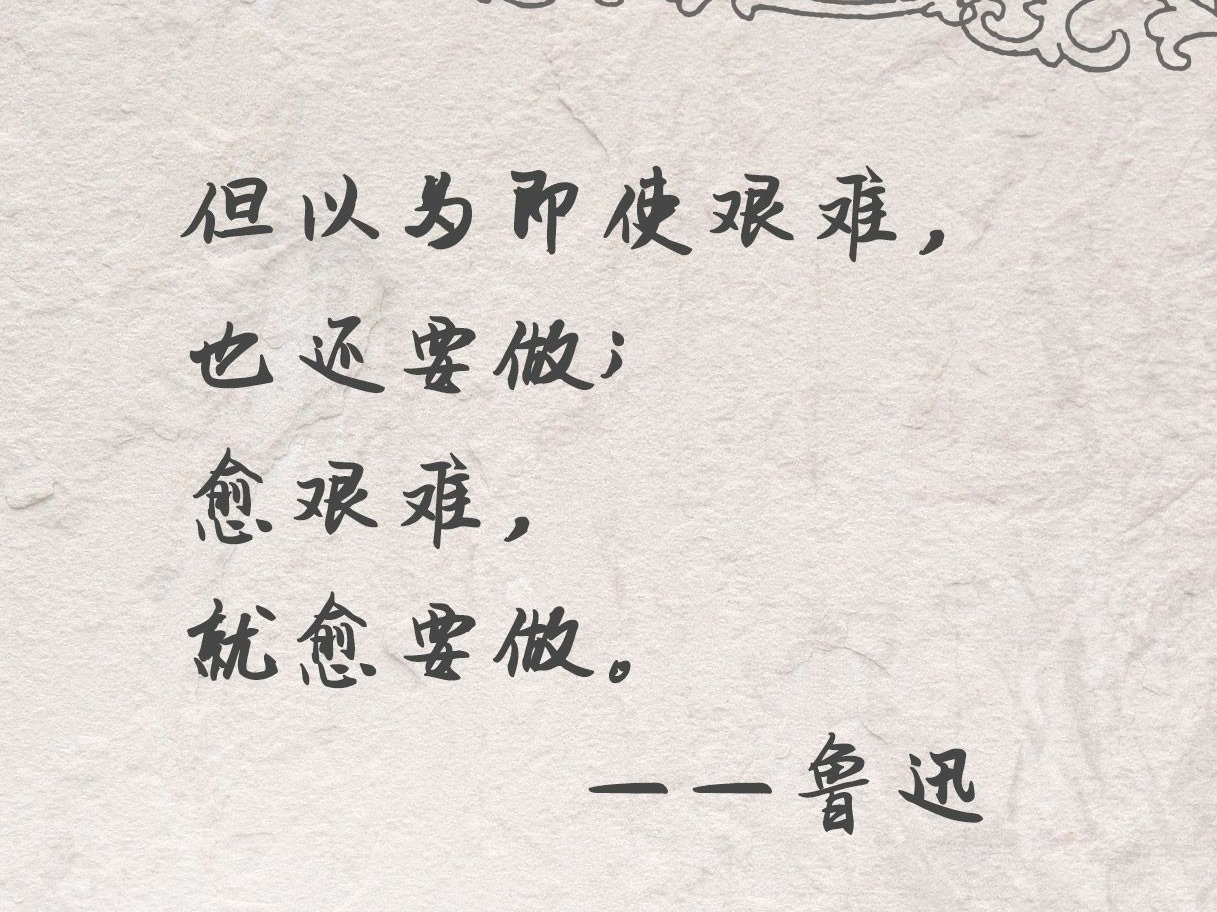 但以为即使艰难，
也还要做；
愈艰难，
就愈要做。
——鲁迅